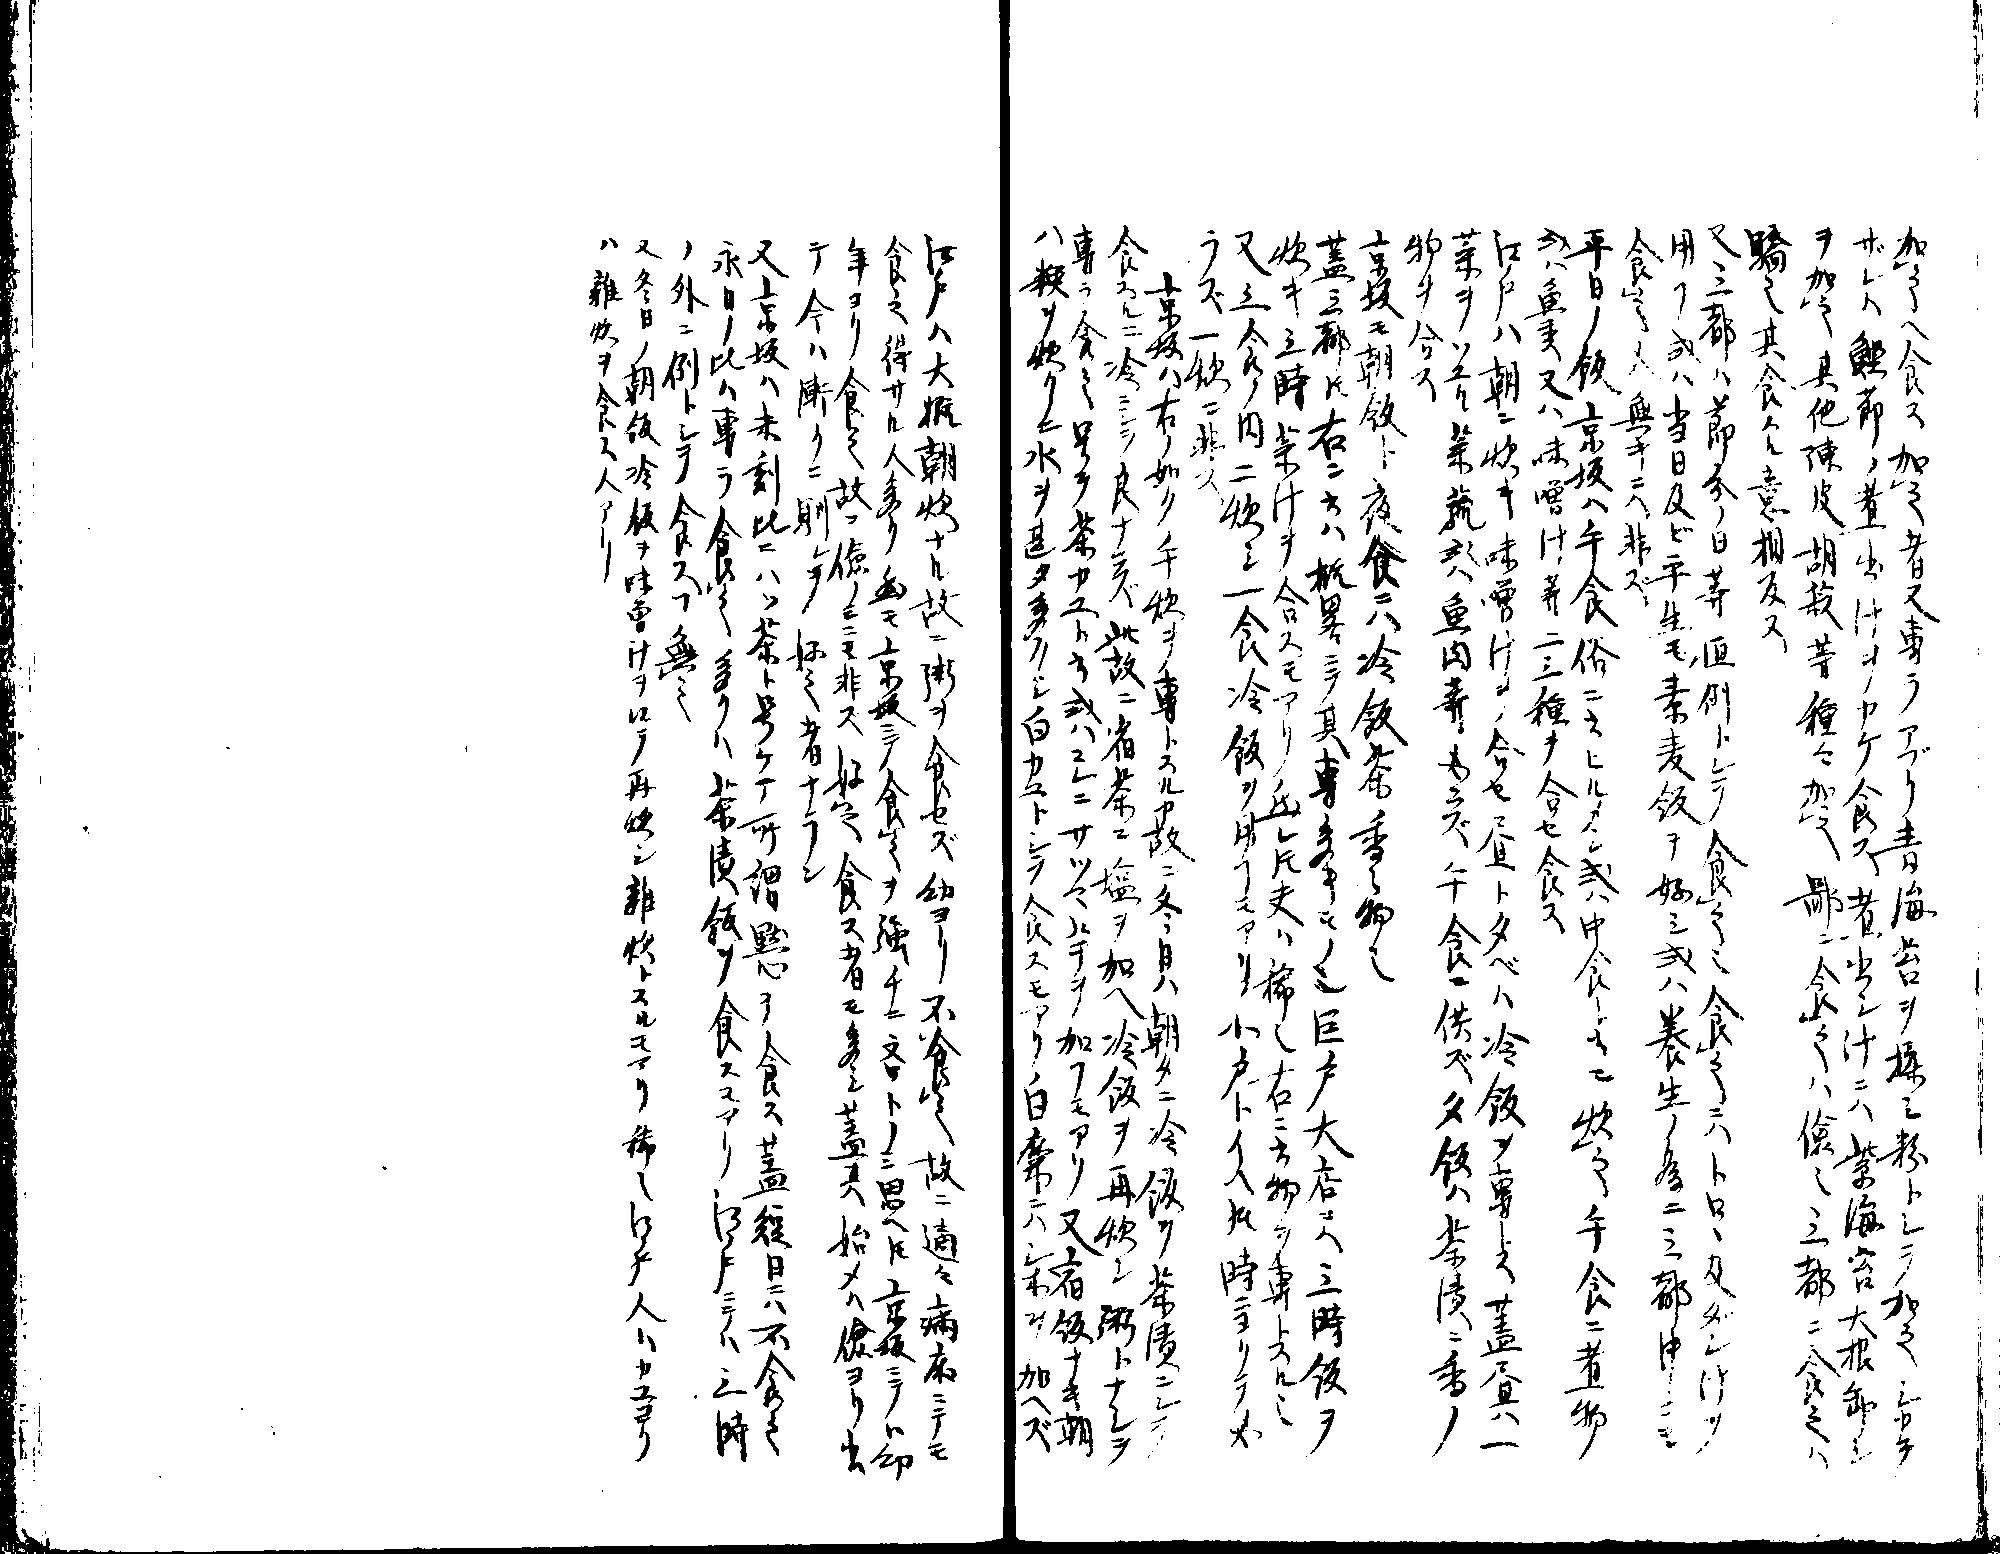 加之ヘ食ス加之者又専ラアブリ青海苔ヲ揉ミ粉トシテ加之シカラ
ザレハ鰹節ノ煮出汁ヲカケ食ス煮出シ汁ニハ紫海苔大根卸シ
ヲ加之其他陳皮胡椒等種々加之鄙ニ食之ハ倹之三都ニ食之ハ
驕之其食スル意相反ス
又三都ハ節分ノ日等恒例トシテ食之ミ食之ニハトロヽ及ダシ汁ヲ
用フ或ハ当日及ビ平生モ素麦飯ヲ好ミ或ハ養生ノ為ニ三都中ニモ
食之人無キニハ非ズ
平日ノ飯京坂ハ午食俗ニ云ヒルメシ或ハ中食ト云ニ炊之午食ニ煮物
或ハ魚类又ハ味噌汁等二三種ヲ合セ食ス
江戸ハ朝ニ炊キ味噌汁ヲ合セ昼ト夕ベハ冷飯ヲ専トス蓋昼ハ一
菜ヲソエル菜蔬或ハ魚肉等必ラズ午食ニ供ズ夕飯ハ茶漬ニ香ノ
物ヲ合ス
京坂モ朝飯ト夜食ニハ冷飯茶香ノ物之
蓋三都トモ右ニ云ハ概畧ニテ其専多キモノ也巨戸大店ハ三時飯ヲ
炊キ三時菜汁ヲ合スモアリ然レトモ夫ハ稀之右ニ云物ヲ専トスル之
又三食ノ内二炊シ一食冷飯ヲ用フモアリ小戸トイヘトモ時ニヨリテ必
ラズ一炊ニ非ズ
京坂ハ右ノ如ク午炊ヲ専トスルカ故ニ冬月ハ朝夕ニ冷飯ヲ茶漬ニシテ
食スルニ冷ニシテ良ナラズ此故ニ宿茶ニ塩ヲ加ヘ冷飯ヲ再炊シ粥トナシテ
専ラ食之号テ茶カユト云或ハコレニサツマ芋ヲ加フモアリ又宿飯ナキ朝
ハ粳ヲ炊クニ水ヲ甚タ多クシ白カユトシテ食スモアリ白粥ニハシホヲ加ヘズ
江戸ハ大概朝炊ナル故ニ粥ヲ食セズ幼ヨリ不食之故ニ適々病床ニテモ
食之得サル人多リ然モ京坂ニテ食之ヲ強チニ吝ト而已思ヘトモ京坂ニテハ幼
年ヨリ食之故ニ倹ノミニモ非ズ好之食ス者モ多シ蓋其始メハ倹ヨリ出
テ今ハ漸クニ馴レテ好之者ナラン
又京坂ハ未刻比ニハツ茶ト号ケテ所謂點心ヲ食ス蓋短日ニハ不食之
永日ノ比ハ専ラ食之多クハ茶漬飯ヲ食スコアリ江戸ニテハ三時
ノ外ニ例トシテ食スコ無之
又冬日ノ朝飯冷飯ヲ味曽汁ヲ以テ再炊シ雜炊トスルモアリ稀之江戸人ハカユヨリ
ハ雜炊ヲ食ス人アリ